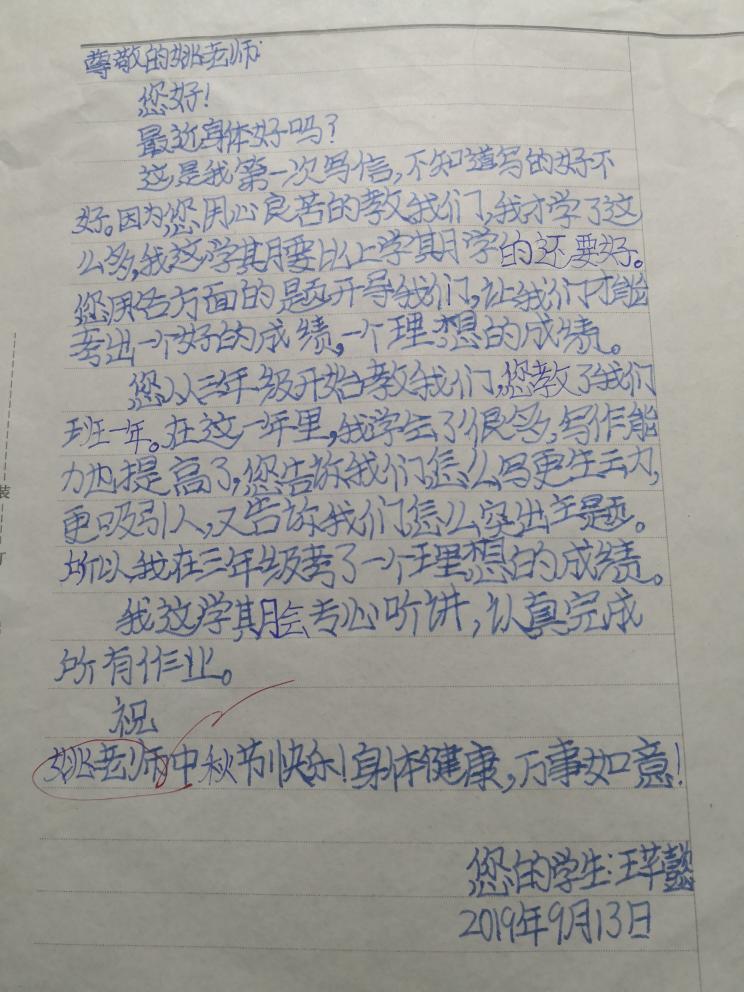 尊敬的姚老师:
您好!
最近身体好吗?
这是我第一次写信,不知道写的好不
好。因为您用心良苦的教我们,我才学了这
么多,我这学期要比上学期学的还要好。
您用各方面的题开导我们,让我们才能
考出一个好的成绩,一个理想的成绩。
您从三年级开始教我们,您教了我们
班一年。在这一年里,我学会了很多,写作能
力也提高了,您告诉我们怎么写更生动,
更吸引人,又告诉我们怎么突出主题。
所以我在三年级考了一个理想的成绩。
我这学期会专心听讲,认真完成
所有作业。
祝
姚老师中秋节快乐!身体健康,万事如意!
您的学生:王芊懿
2019年9月13日
装